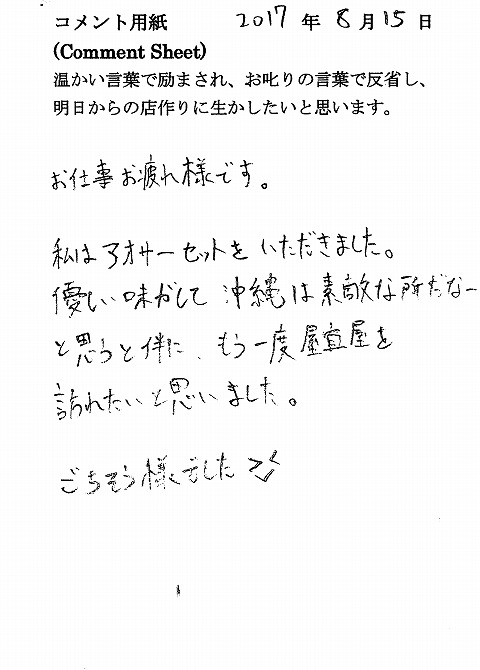 コメント用紙 2017 年 8 月 15 日
(Comment Sheet)
温かい言葉で励まされ、お叱りの言葉で反省し、
明日からの店作りに生かしたいと思います。
お仕事お疲れ様です。
私はアオサーセットをいただきました。
優しい味がして沖縄は素敵な所だなー
と思うと伴に、もう一度屋宜屋を
訪れたいと思いました。
ごちそう様でした